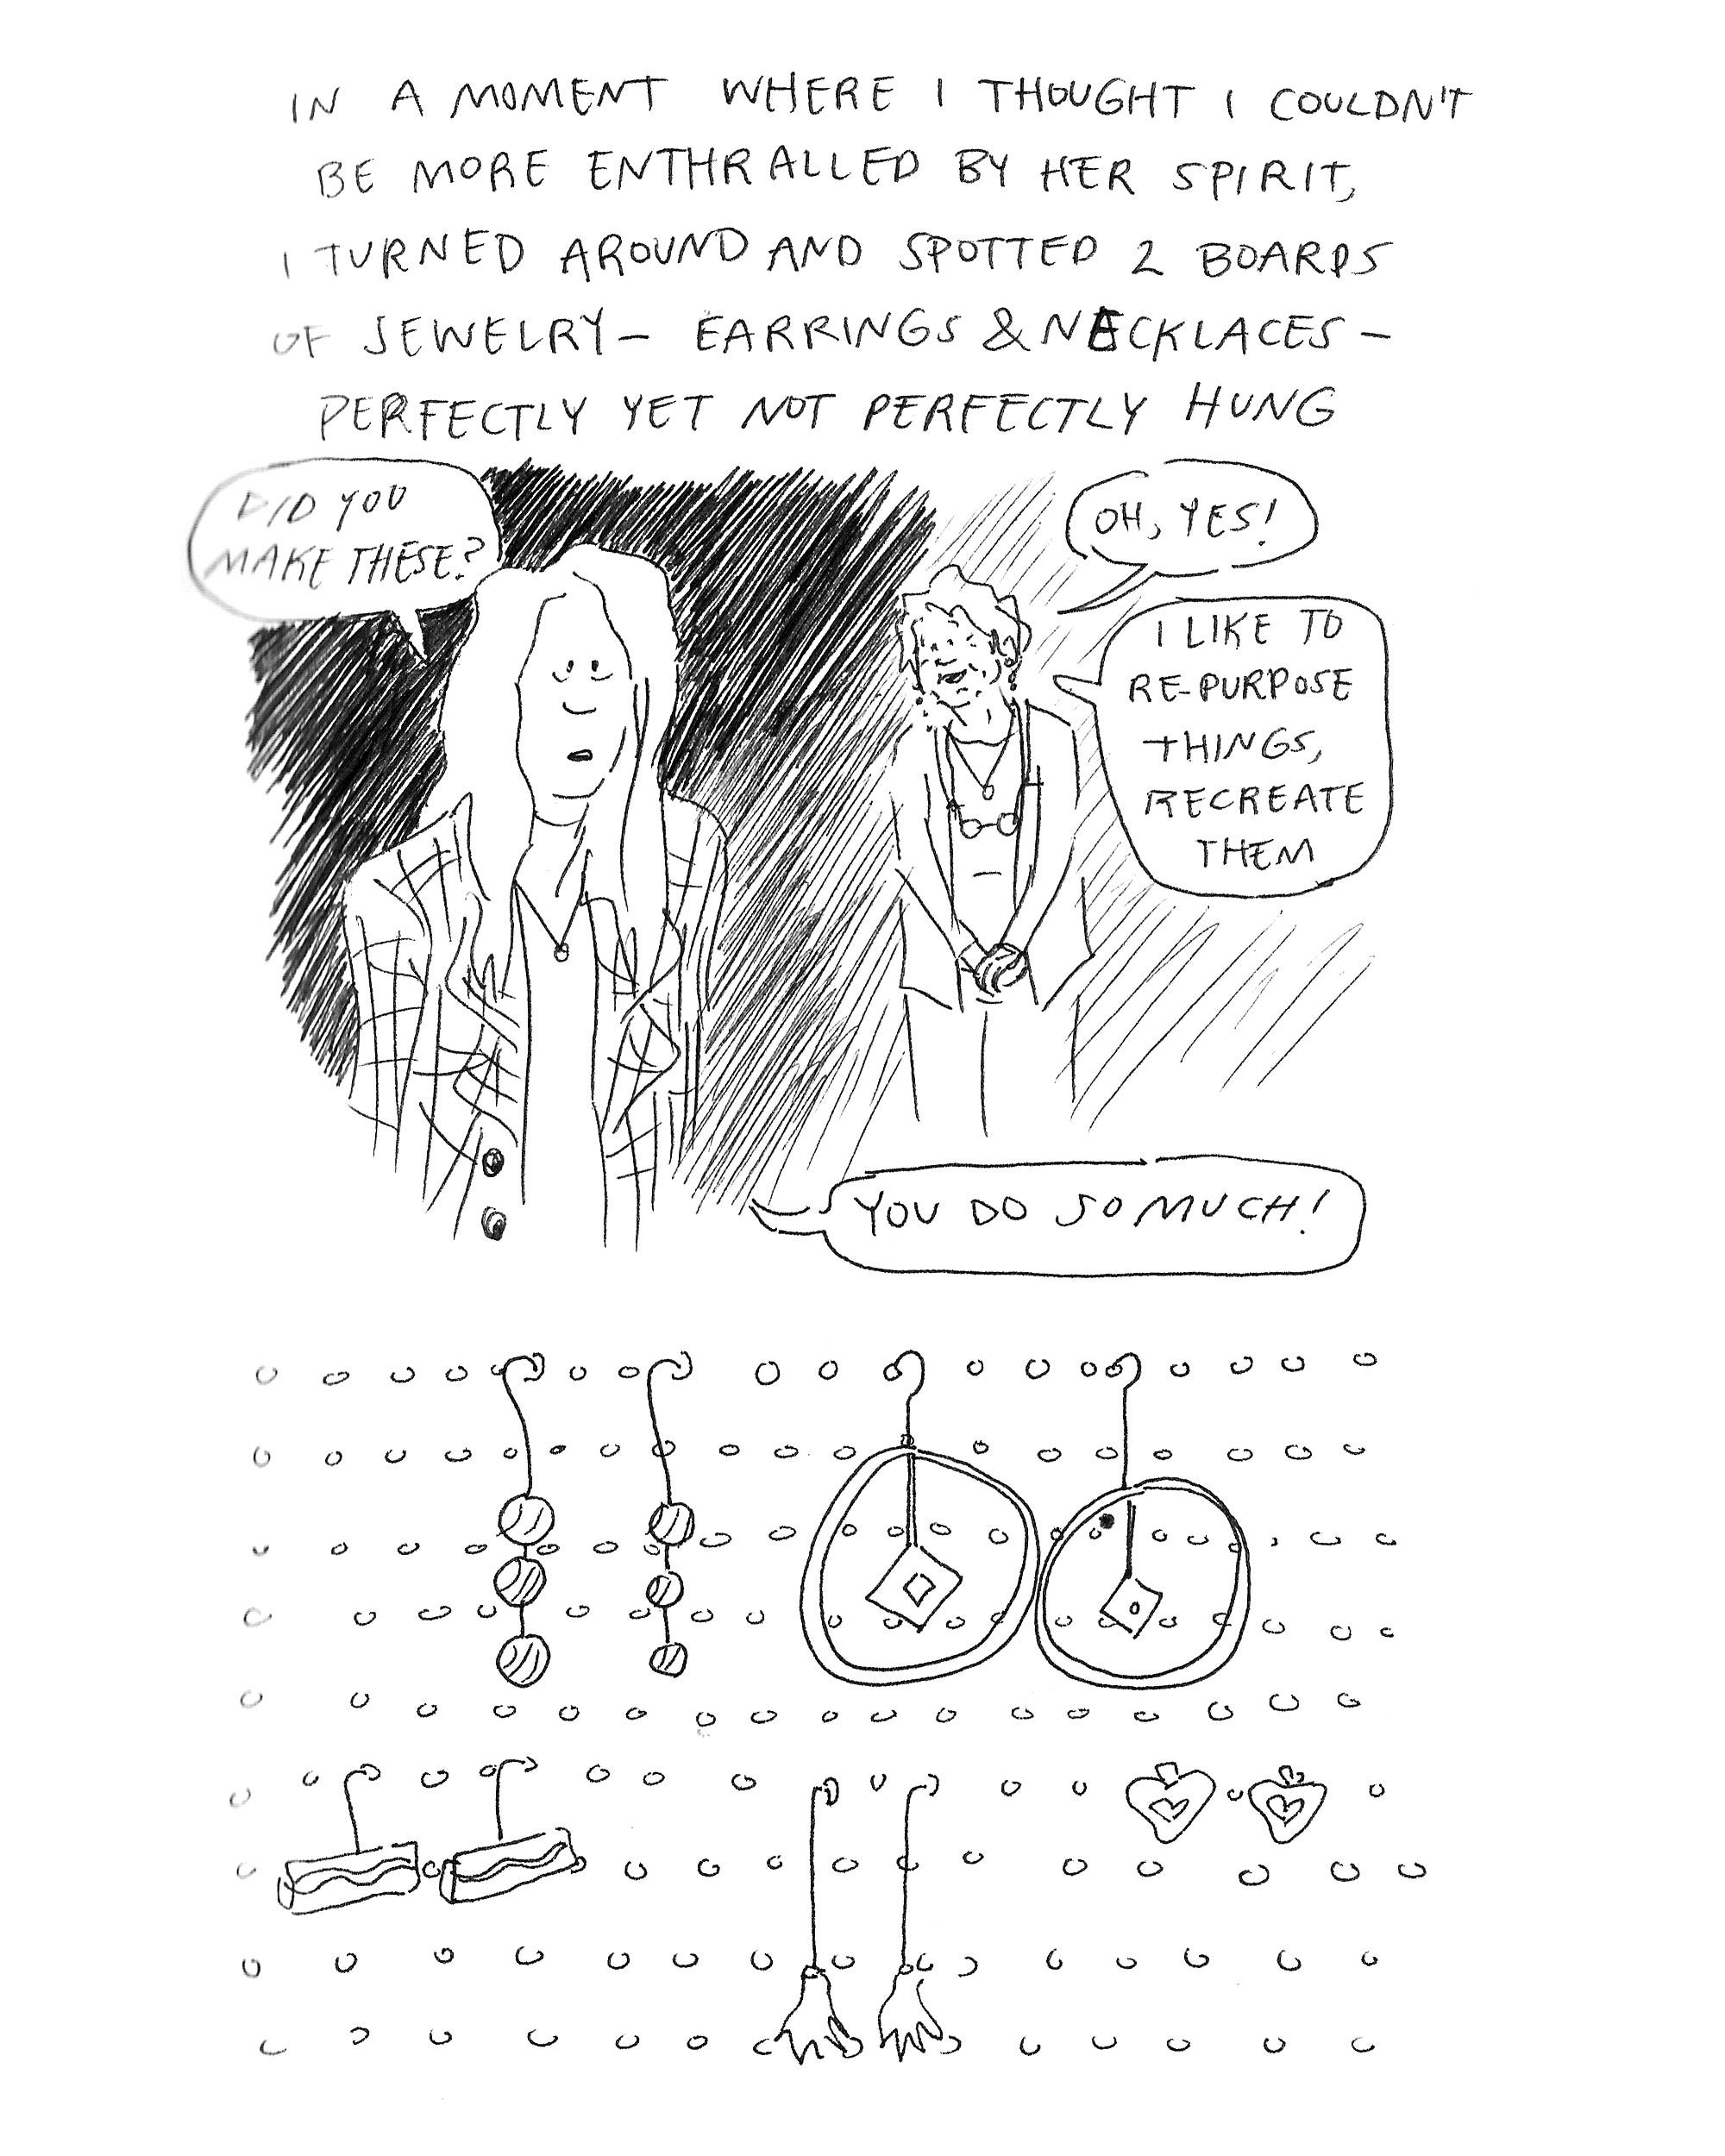 IN A MOMENT WHERE I THOUGHT I COULDN'T
BE MORE ENTHRALLED BY HER SPIRIT,
I TURNED AROUND AND SPOTTED 2 BOARDS
OF JEWELRY – EARRINGS & NECKLACES –
PERFECTLY YET NOT PERFECTLY HUNG
DID YOU
MAKE THESE?
OH, YES!
I LIKE TO
RE-PURPOSE
THINGS,
RECREATE
THEM
YOU DO SO MUCH!